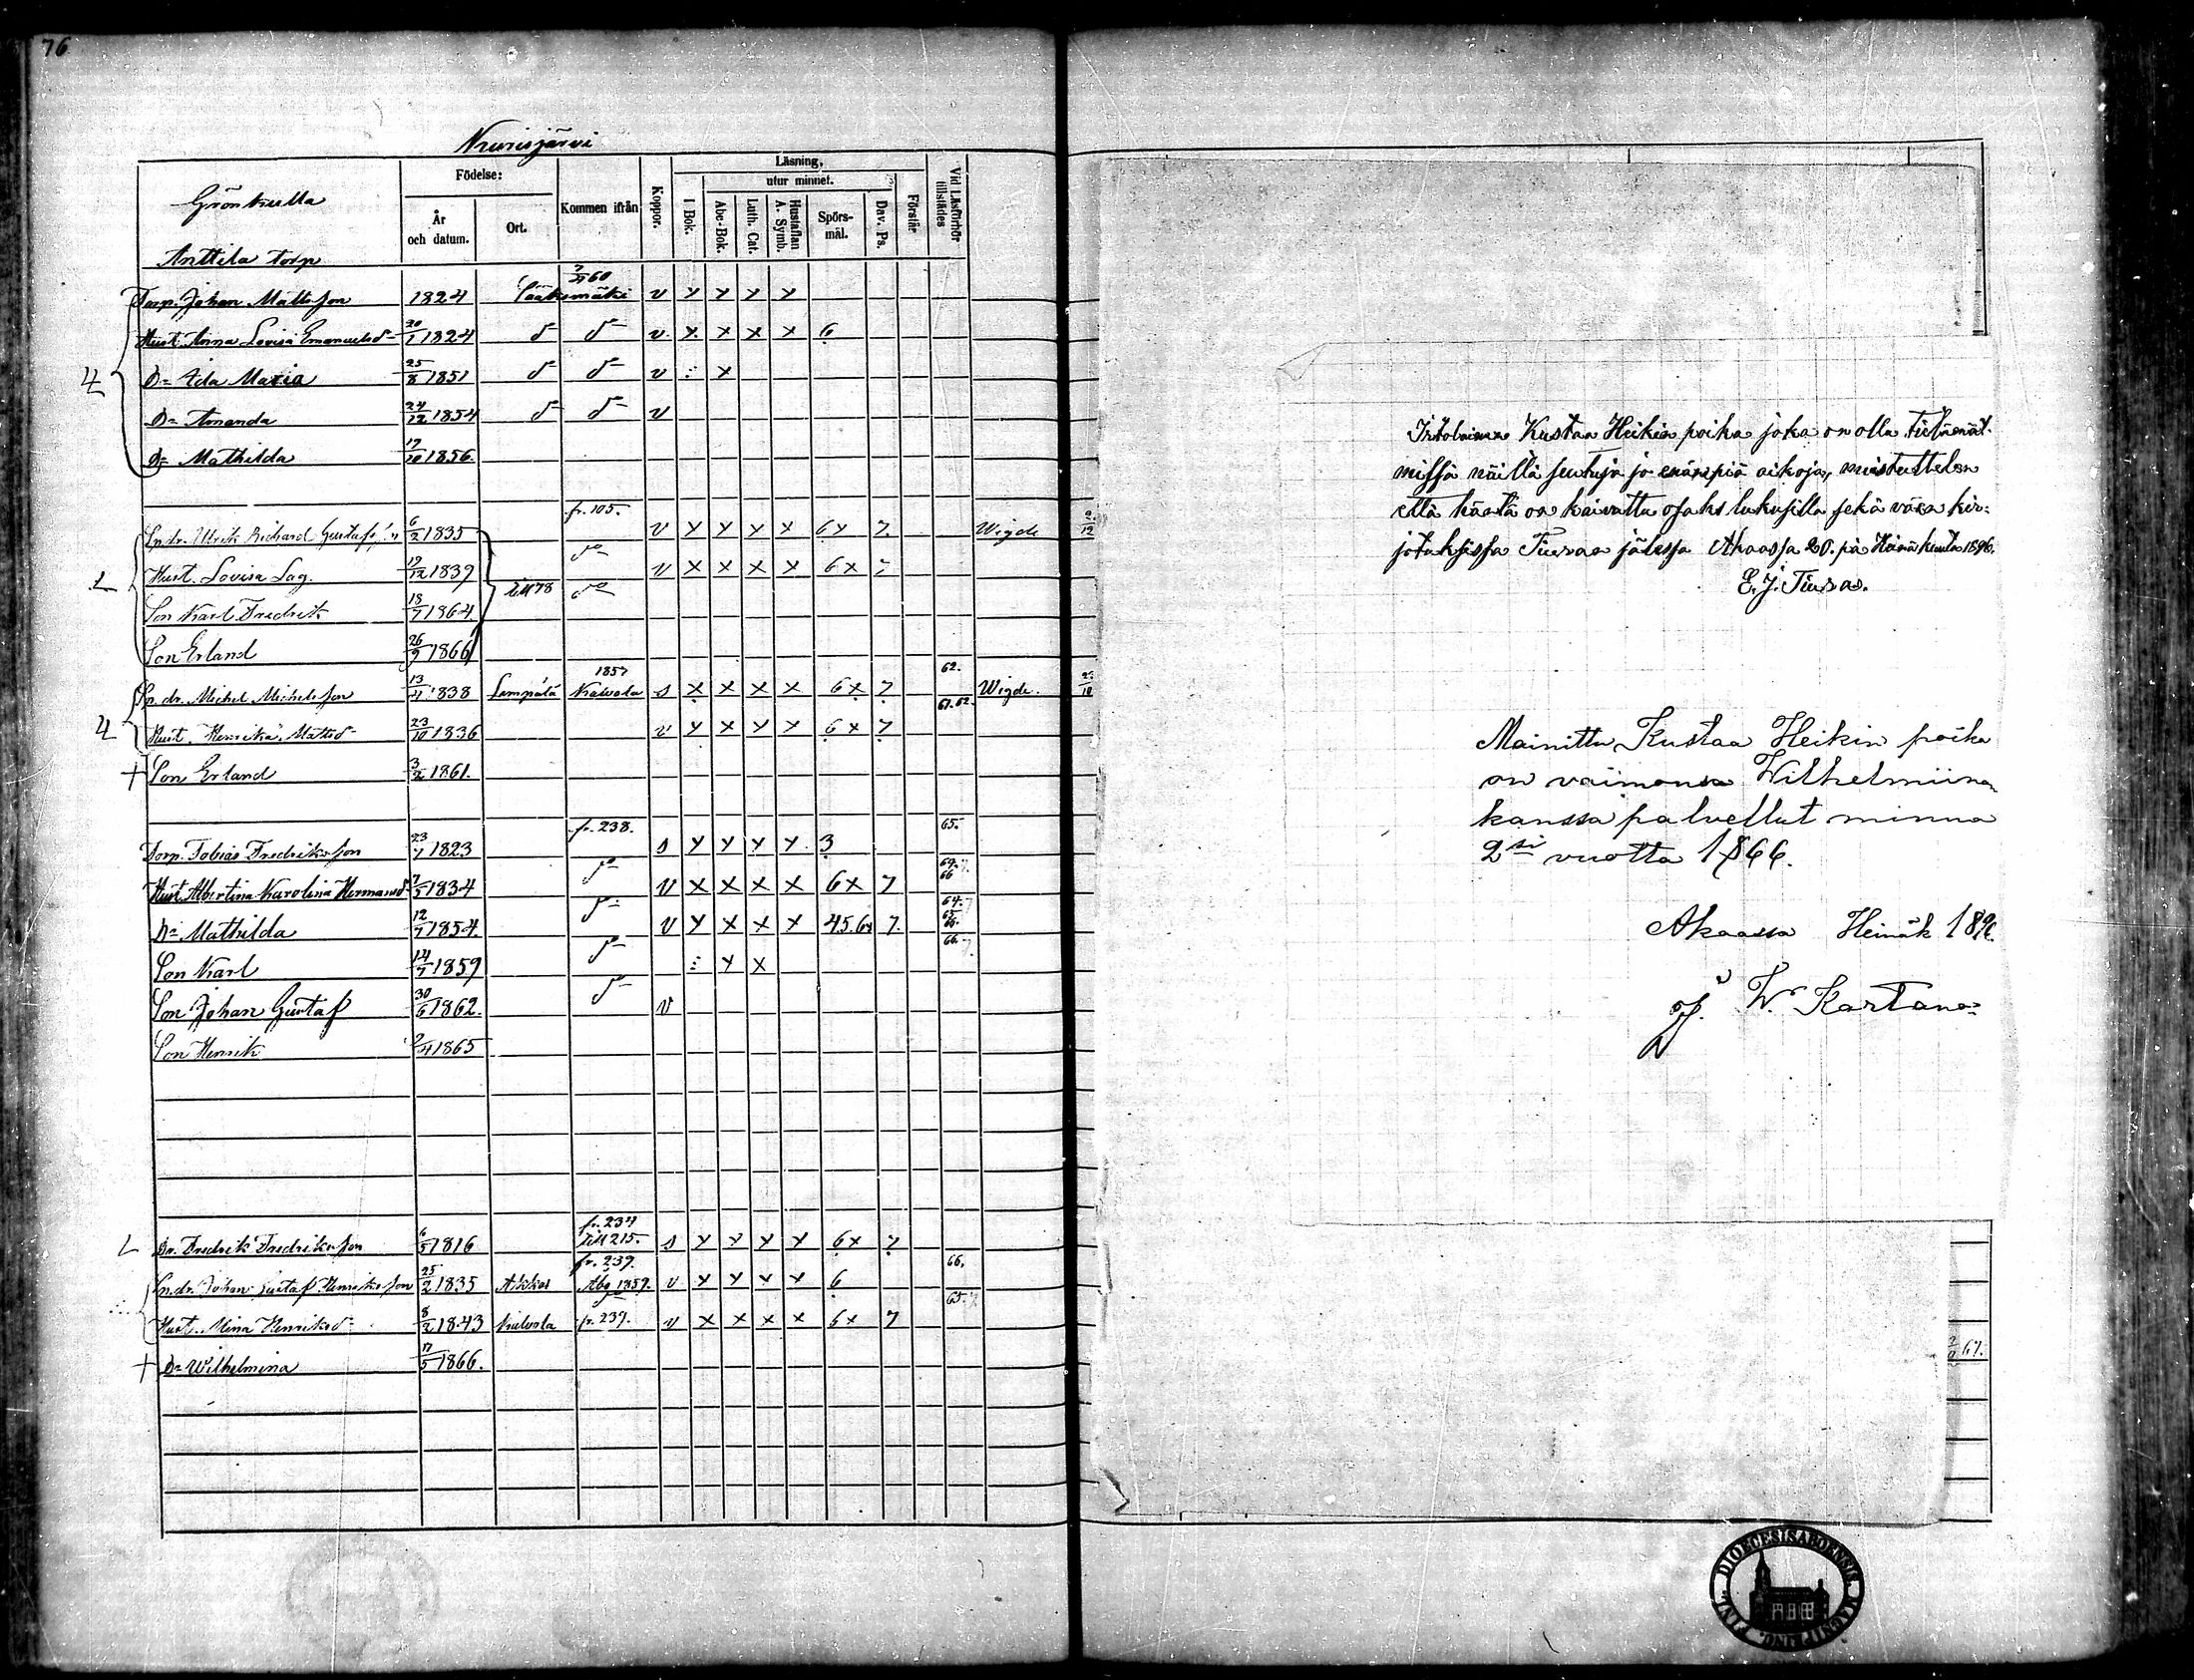 76
Nurisjärvi
Grönkulla
Anttila torp
Födelse:
År och datum.
Ort.
Kommen ifrån
Koppor.
Läsning,
utur minnet.
I Bok.
Abc-Bok.
Luth. Cat.
Hustaflan A. Symb.
Spörsmål.
Dav. Ps.
Förstår
Vid Läsförhör tillstädes
Torp. Johan Mattsson 1824 Sääksmäki 60 v x x x x
Hust. Anna Lovisa Emanuelsd 20/1 1824 d d v x x x x 6
Dr Ida Maria 25/8 1851 d d v : x
Dr Amanda 24/12 1854 d d v
Dr Mathilda 17/10 1856.
Sp.dr. Ulrik Richard Gustafs 6/2 1835 fr. 105. v x x x x 6x 7. Wigde
Hust. Lovisa Lag. 19/12 1839 do v x x x x 6x 7
Son Karl Fredrik 18/7 1864. till 78 do
Son Erland 26/9 1866
Sp. dr. Michel Michelsson 13/4 1838 Lempälä 1857 Kalvola s x x x x 6x 7 62. Wigde.
Hust. Henrika Mattsd 23/10 1836 v x x x x 6x 7 61.62.
+ Son Erland 3/2 1861.
Torp. Tobias Fredriksson 23/7 1823 fr. 238. s x x x x 3 65.
Hust. Albertina Karolina Hermansd 7/5 1834 do v x x x x 6x 7 66
Dr Mathilda 12/7 1854. d v x x x x 45.6x 7. 64. 65. 66.
Son Karl 14/7 1859 d : x x 66.
Son Johan Gustaf 30/6 1862. d v
Son Henrik 2/4 1865
Dr. Fredrik Fredriksson 6/5 1816 fr. 234 till 215. s x x x x 6x 7
Sp.dr. Johan Gustaf Henriksson 25/2 1835 Akkas fr. 239. Abg 1859. v x x x x 6 66.
Hust. Mina Henriksd 8/2 1843 Kalvola fr. 239. v x x x x 6x 7 65.
+ Dr Wilhelmina 17/5 1866.
67.
Kustaa Heikin poika joka on olla
missä näillä seutuja jo aikoja, muistuttelen
että häntä on kaivattu lukusilla sekä
Tiuraa jälessä Akaassa 20. pä Heinäkuuta 1896.
E. J. Tiuraa.
Mainittu Kustaa Heikin poika
on vaimonsa Wilhelmiinan
kanssa palvellut minua
2si vuotta 1866.
Akaassa Heinäk 189
W. Kartano
DIOECESIS ABOENSIS MAGNI DUC. FINL.